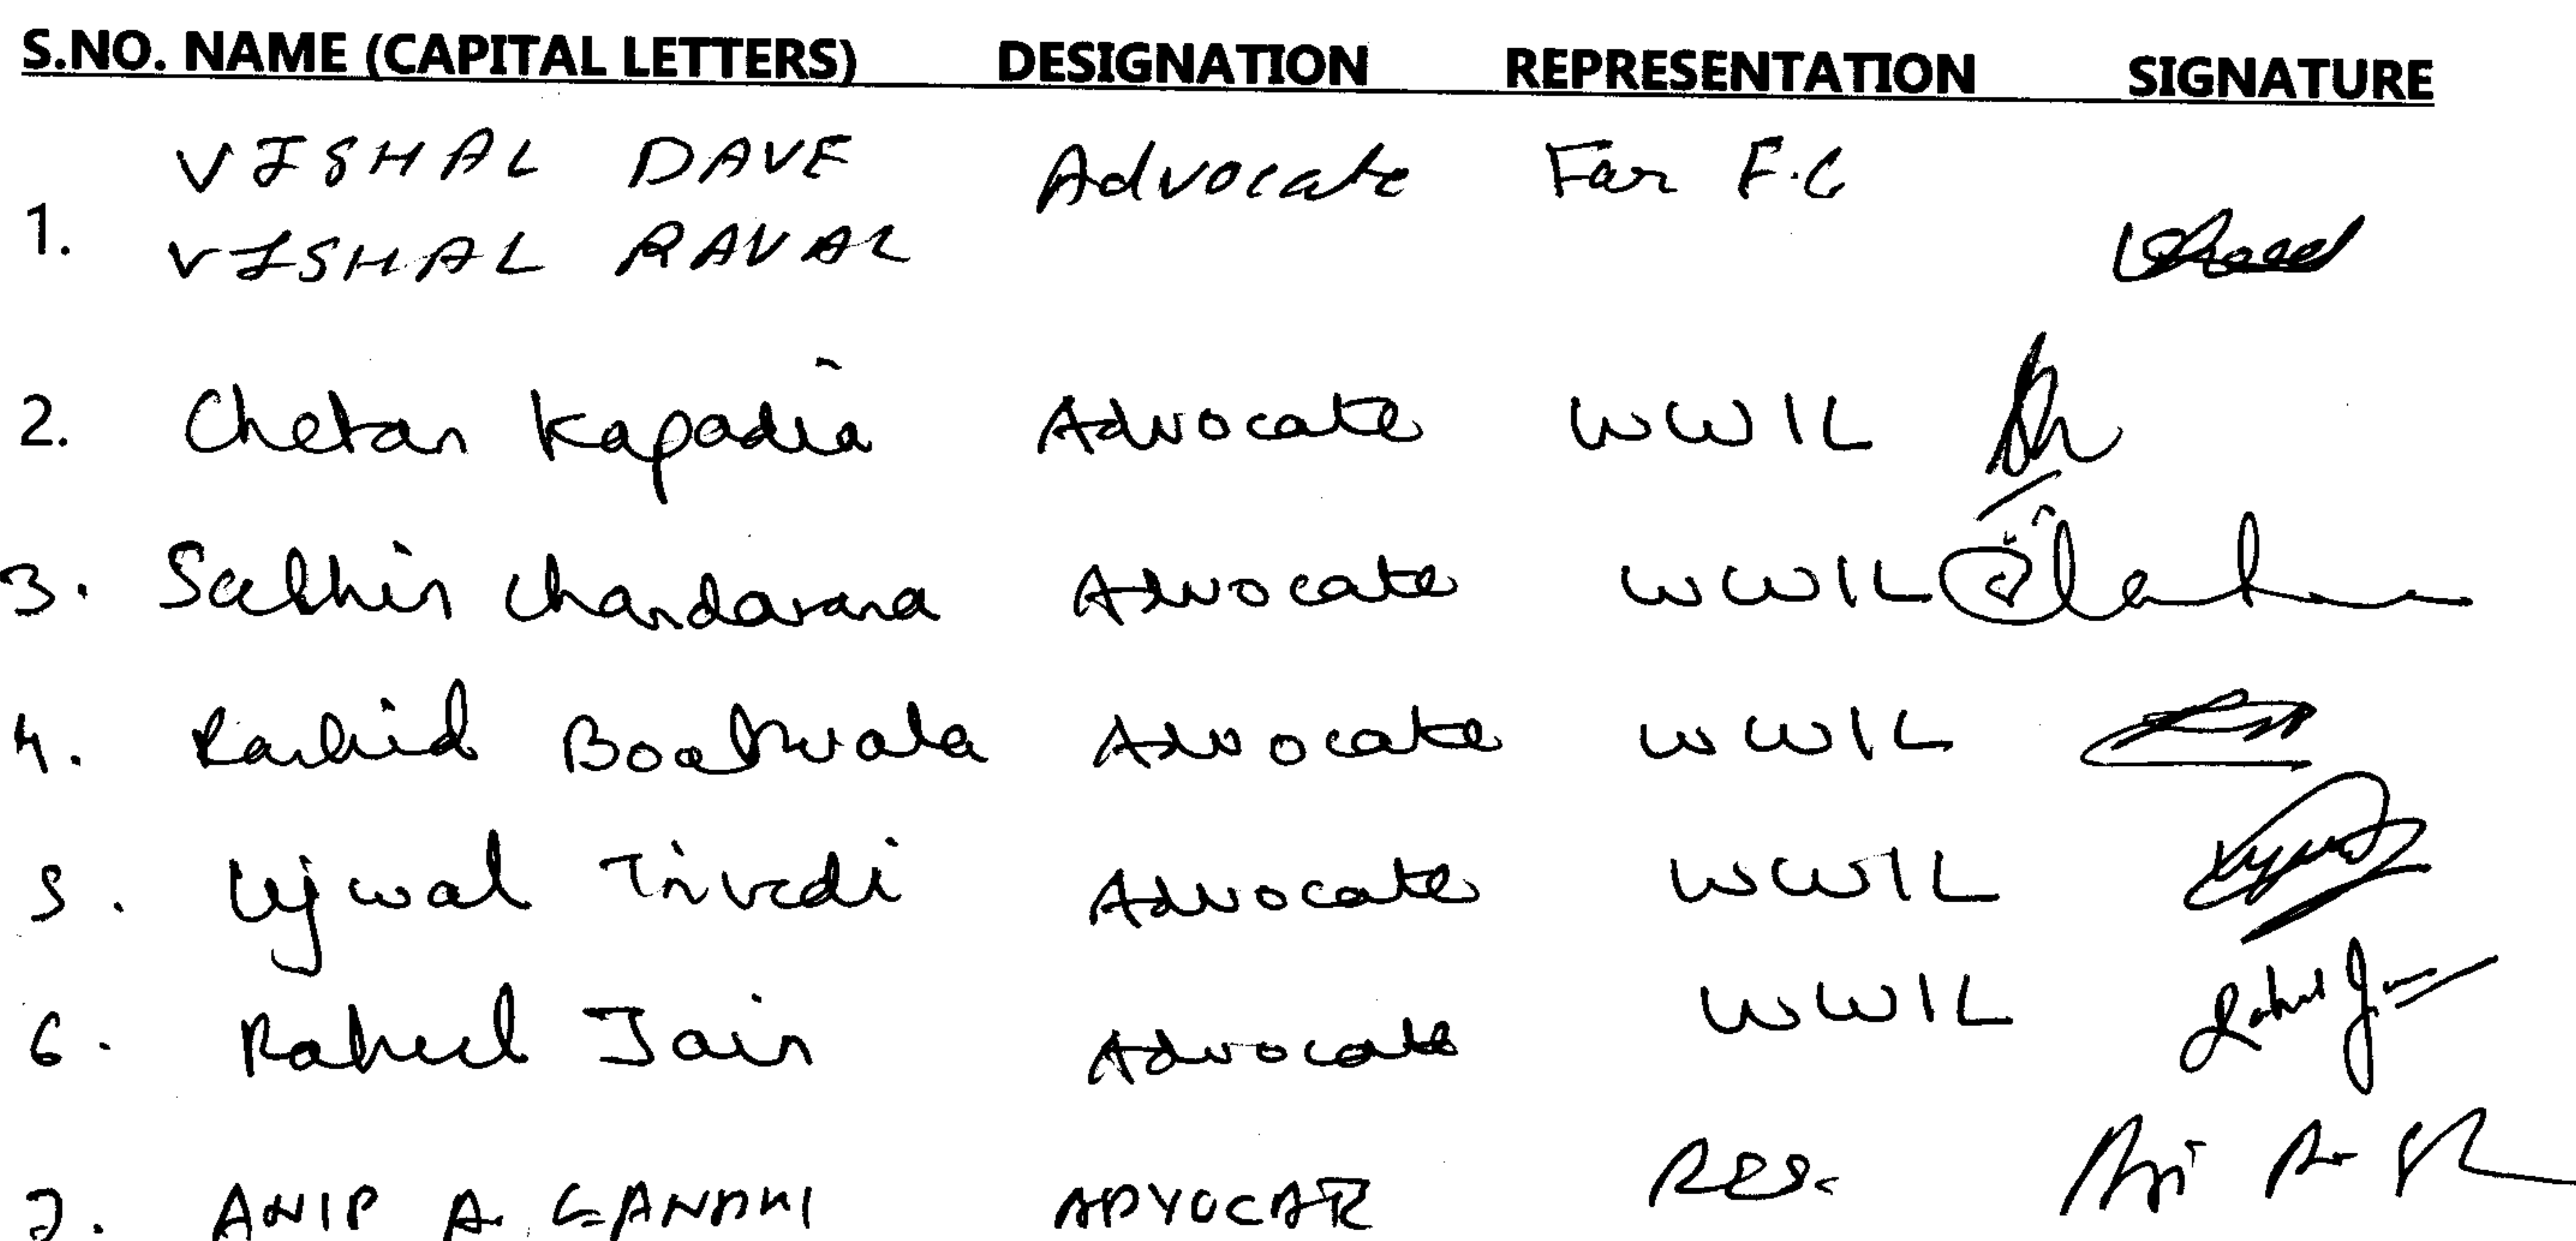 S.NO. NAME (CAPITAL LETTERS) DESIGNATION REPRESENTATION SIGNATURE
VISHAL DAVE Advocate For F.C
1. VISHAL RAVAL
2. Chetan Kapadia Advocate WWIL
3. Sachin Chandarana Advocate WWIL
4. Rashid Boatwala Advocate WWIL
5. Ujwal Trivedi Advocate WWIL
6. Rahul Jain Advocate WWIL Rahul Jain
7. A. GANDHI ADVOCATE RES.